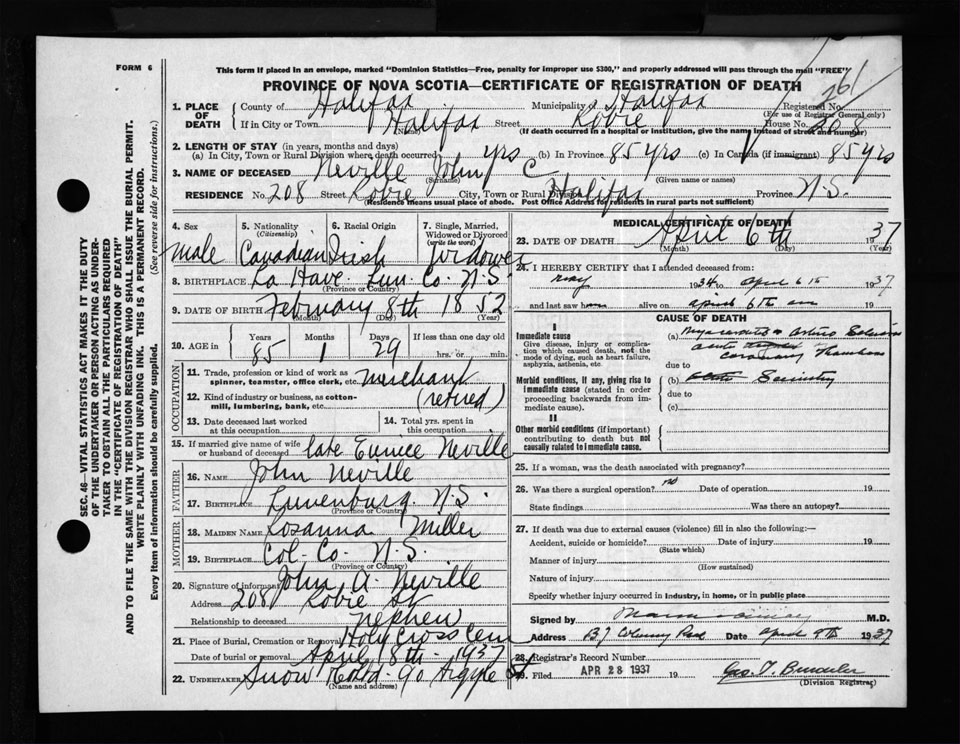 FORM 6
This form if placed in an envelope, marked "Dominion Statistics—Free, penalty for improper use $300," and properly addressed will pass through the mail "FREE"
PROVINCE OF NOVA SCOTIA—CERTIFICATE OF REGISTRATION OF DEATH
261
1. PLACE OF DEATH
County of Halifax Municipality Halifax Registered No.
(For use of Registrar General only)
If in City or Town Halifax Street Robie House No. 208
(Name) (If death occurred in a hospital or institution, give the name instead of street and number)
2. LENGTH OF STAY (in years, months and days)
(a) In City, Town or Rural Division where death occurred yrs (b) In Province 85 yrs (c) In Canada (if immigrant) 85 yrs
3. NAME OF DECEASED Neville John C
(Surname) (Given name or names)
RESIDENCE No. 208 Street Robie City, Town or Rural Division Halifax Province N.S.
(Residence means usual place of abode. Post Office Address for residents in rural parts not sufficient)
4. Sex 5. Nationality (Citizenship) 6. Racial Origin 7. Single, Married, Widowed or Divorced (write the word)
male Canadian Irish widower
8. BIRTHPLACE La Have Lun. Co. N.S.
(Province or Country)
9. DATE OF BIRTH February 8th 1852
(Month) (Day) (Year)
10. AGE in Years Months Days If less than one day old
85 1 29 hrs. or min.
OCCUPATION
11. Trade, profession or kind of work as spinner, teamster, office clerk, etc. merchant
12. Kind of industry or business, as cotton-mill, lumbering, bank, etc. (retired)
13. Date deceased last worked at this occupation 14. Total yrs. spent in this occupation
15. If married give name of wife or husband of deceased late Eunice Neville
FATHER
16. NAME John Neville
17. BIRTHPLACE Lunenburg N.S.
(Province or Country)
MOTHER
18. MAIDEN NAME Rosanna Miller
19. BIRTHPLACE Col. Co. N.S.
(Province or Country)
20. Signature of informant John A. Neville
Address 208 Robie St
Relationship to deceased nephew
21. Place of Burial, Cremation or Removal Holy Cross Cem
Date of burial or removal April 8th 1937
22. UNDERTAKER Snow 90 Argyle St
(Name and address)
MEDICAL CERTIFICATE OF DEATH
23. DATE OF DEATH April 6th 1937
(Month) (Day) (Year)
24. I HEREBY CERTIFY that I attended deceased from:
may 1934 to april 6th 1937
and last saw h alive on april 6th
CAUSE OF DEATH
I
Immediate cause
Give disease, injury or complication which caused death, not the mode of dying, such as heart failure, asphyxia, asthenia, etc.
(a)
coronary
due to
Morbid conditions, if any, giving rise to immediate cause (stated in order proceeding backwards from immediate cause).
(b)
due to
(c)
II
Other morbid conditions (if important) contributing to death but not causally related to immediate cause.
25. If a woman, was the death associated with pregnancy?
26. Was there a surgical operation? no Date of operation 19
State findings Was there an autopsy?
27. If death was due to external causes (violence) fill in also the following:—
Accident, suicide or homicide? Date of injury 19
(State which)
Manner of injury
(How sustained)
Nature of injury
Specify whether injury occurred in industry, in home, or in public place
Signed by M.D.
Address Date April 9th 1937
28. Registrar's Record Number
29. Filed APR 28 1937 19 Geo. T.
(Division Registrar)
SEC. 46—VITAL STATISTICS ACT MAKES IT THE DUTY
OF THE UNDERTAKER OR PERSON ACTING AS UNDER-
TAKER TO OBTAIN ALL THE PARTICULARS REQUIRED
IN THE "CERTIFICATE OF REGISTRATION OF DEATH"
AND TO FILE THE SAME WITH THE DIVISION REGISTRAR WHO SHALL ISSUE THE BURIAL PERMIT.
WRITE PLAINLY WITH UNFADING INK. THIS IS A PERMANENT RECORD.
Every item of information should be carefully supplied. (See reverse side for instructions.)